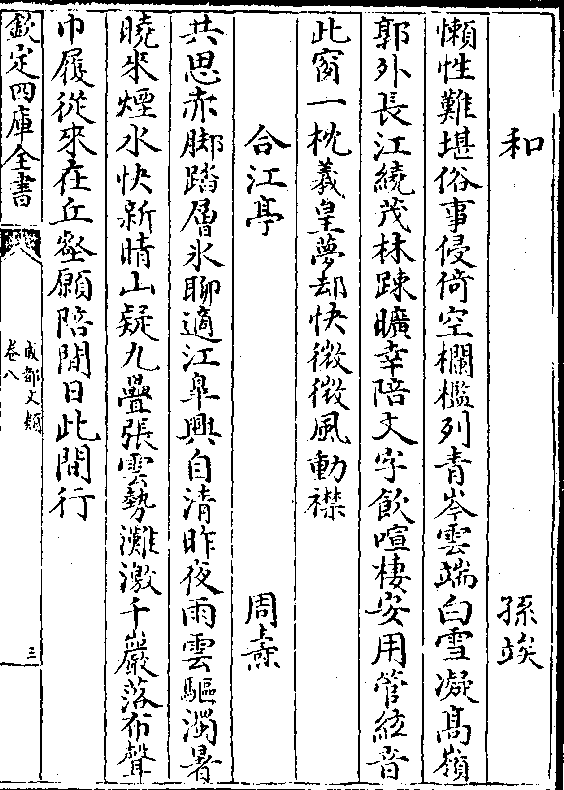 和　孫竢
懶性難堪俗事侵倚空欄檻列青岑雲端白雪凝高嶺
郭外長江繞茂林踈曠幸陪文字飲喧棲安用管絃音
此窗一枕羲皇夢却快微微風動襟
合江亭　周燾
共思赤脚踏層氷聊適江臯興自清昨夜雨雲驅濁暑
曉來煙水快新晴山疑九疊張雲勢灘激千巖落布聲
巾履從來在丘壑願陪閒日此間行
欽定四庫全書
成都文類
卷八
三